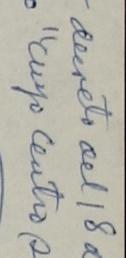 - decreto del 18 d
o "cuyo centro (s